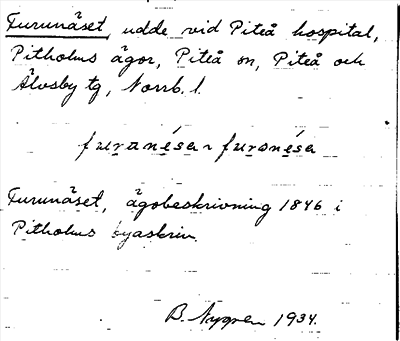 Furunäset, udde vid Piteå hospital,
Pitholms ägor, Piteå sn, Piteå och
Älvsby tg, Norrb. l.
furanésa ~ furonésa
Furunäset, ägobeskrivning 1846 i
Pitholms byaskrin.
B. Nygren 1934.